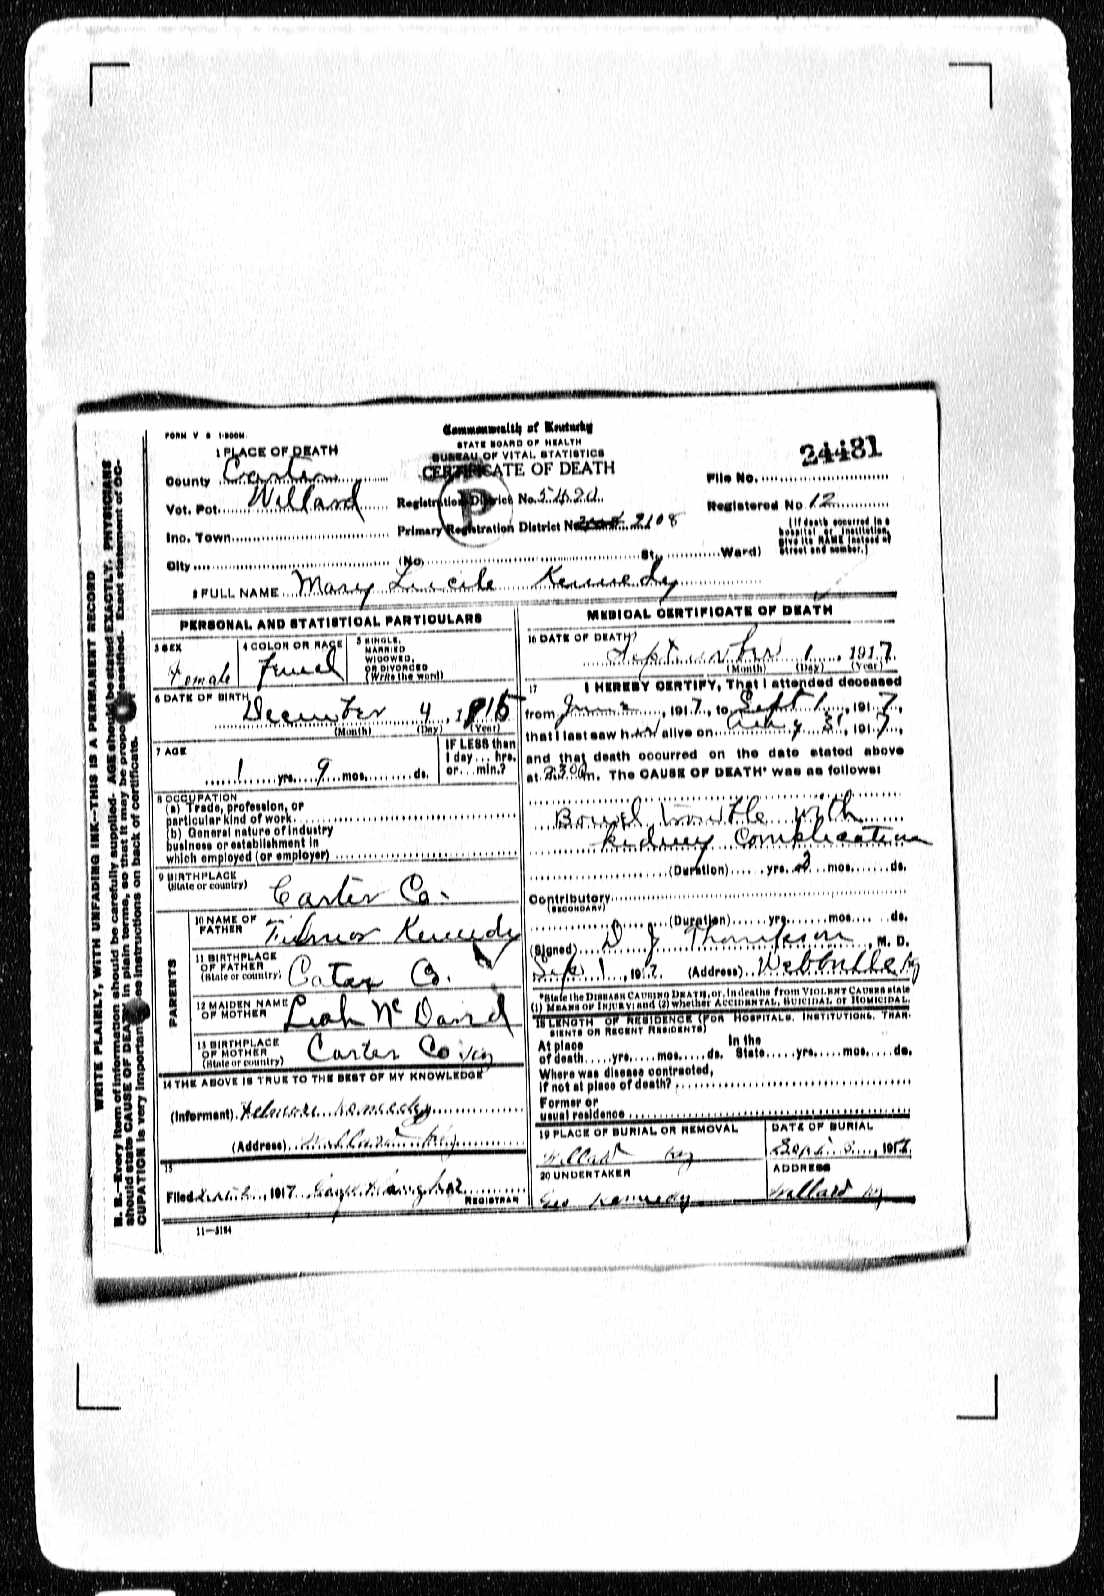 FORM V S 1-500M
Commonwealth of Kentucky
STATE BOARD OF HEALTH
BUREAU OF VITAL STATISTICS
CERTIFICATE OF DEATH
24481
1 PLACE OF DEATH
County Carter
Vot. Pct. Willard
Inc. Town
City
Registration District No.
Primary Registration District No. 2108
(No. St., Ward)
File No.
Registered No 12
(If death occurred in a hospital or institution, give its NAME instead of street and number.)
P
2 FULL NAME Mary Lucile Kennedy
PERSONAL AND STATISTICAL PARTICULARS
3 SEX
Female
4 COLOR OR RACE
5 SINGLE, MARRIED WIDOWED, OR DIVORCED (Write the word)
6 DATE OF BIRTH
December 4, 1915
(Month) (Day) (Year)
7 AGE
1 yrs. 9 mos. ds.
IF LESS than 1 day... hrs. or... min.?
8 OCCUPATION
(a) Trade, profession, or
particular kind of work
(b) General nature of industry
business or establishment in
which employed (or employer)
9 BIRTHPLACE
(State or country) Carter Co.
PARENTS
10 NAME OF FATHER Kennedy
11 BIRTHPLACE OF FATHER (State or country) Co.
12 MAIDEN NAME OF MOTHER Leah Mc David
13 BIRTHPLACE OF MOTHER (State or country) Carter Co Ky
14 THE ABOVE IS TRUE TO THE BEST OF MY KNOWLEDGE
(Informant) Kennedy
(Address) Willard Ky
15
Filed Sept 2, 1917
REGISTRAR
11-3184
MEDICAL CERTIFICATE OF DEATH
16 DATE OF DEATH
September 1, 1917
(Month) (Day) (Year)
17 I HEREBY CERTIFY, That I attended deceased
from June, 1917, to Sept 1, 1917,
that I last saw her alive on Aug 31, 1917,
and that death occurred on the date stated above
at m. The CAUSE OF DEATH* was as follows:
Bowel trouble with
kidney complication
(Duration) yrs. mos. ds.
Contributory
(SECONDARY)
(Duration) yrs. mos. ds.
(Signed) D J Thompson M. D.
Sep 1, 1917 (Address) Webbville Ky
*State the DISEASE CAUSING DEATH, or, in deaths from VIOLENT CAUSES state
(1) MEANS OF INJURY; and (2) whether ACCIDENTAL, SUICIDAL, or HOMICIDAL.
18 LENGTH OF RESIDENCE (FOR HOSPITALS, INSTITUTIONS, TRANSIENTS OR RECENT RESIDENTS)
At place of death yrs. mos. ds. In the State yrs. mos. ds.
Where was disease contracted,
if not at place of death?
Former or
usual residence
19 PLACE OF BURIAL OR REMOVAL
Willard Ky
DATE OF BURIAL
Sept 1917
20 UNDERTAKER
Geo Kennedy
ADDRESS
Willard Ky
WRITE PLAINLY, WITH UNFADING INK--THIS IS A PERMANENT RECORD
N. B.--Every item of information should be carefully supplied. AGE should be stated EXACTLY. PHYSICIANS
should state CAUSE OF DEATH in plain terms, so that it may be properly classified. Exact statement of OC-
CUPATION is very important. See instructions on back of certificate.